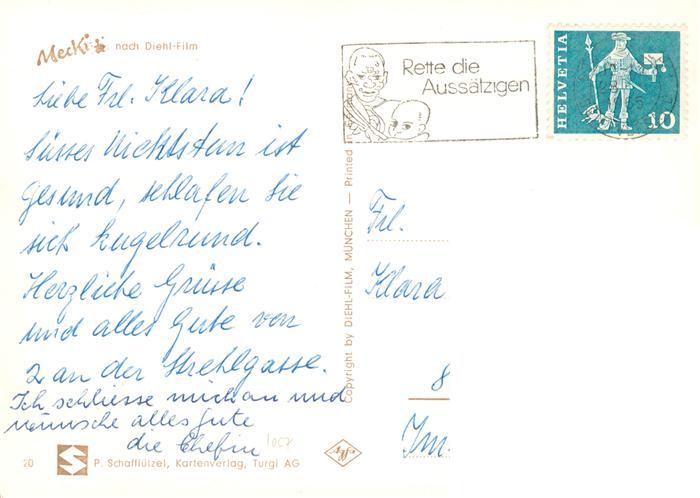 Mecki nach Diehl-Film
Liebe Frl. Klara!
Süsses Nichtstun ist
gesund, schlafen Sie
sich kugelrund.
Herzliche Grüsse
und alles Gute von
2 an der Strehlgasse.
Ich schliesse mich an und
wünsche alles Gute
die Chefin
20
S P. Schafflützel, Kartenverlag, Turgi AG
Copyright by DIEHL-FILM, MÜNCHEN — Printed in
Agfa
Rette die
Aussätzigen
HELVETIA
10
Frl.
Klara
8
Im